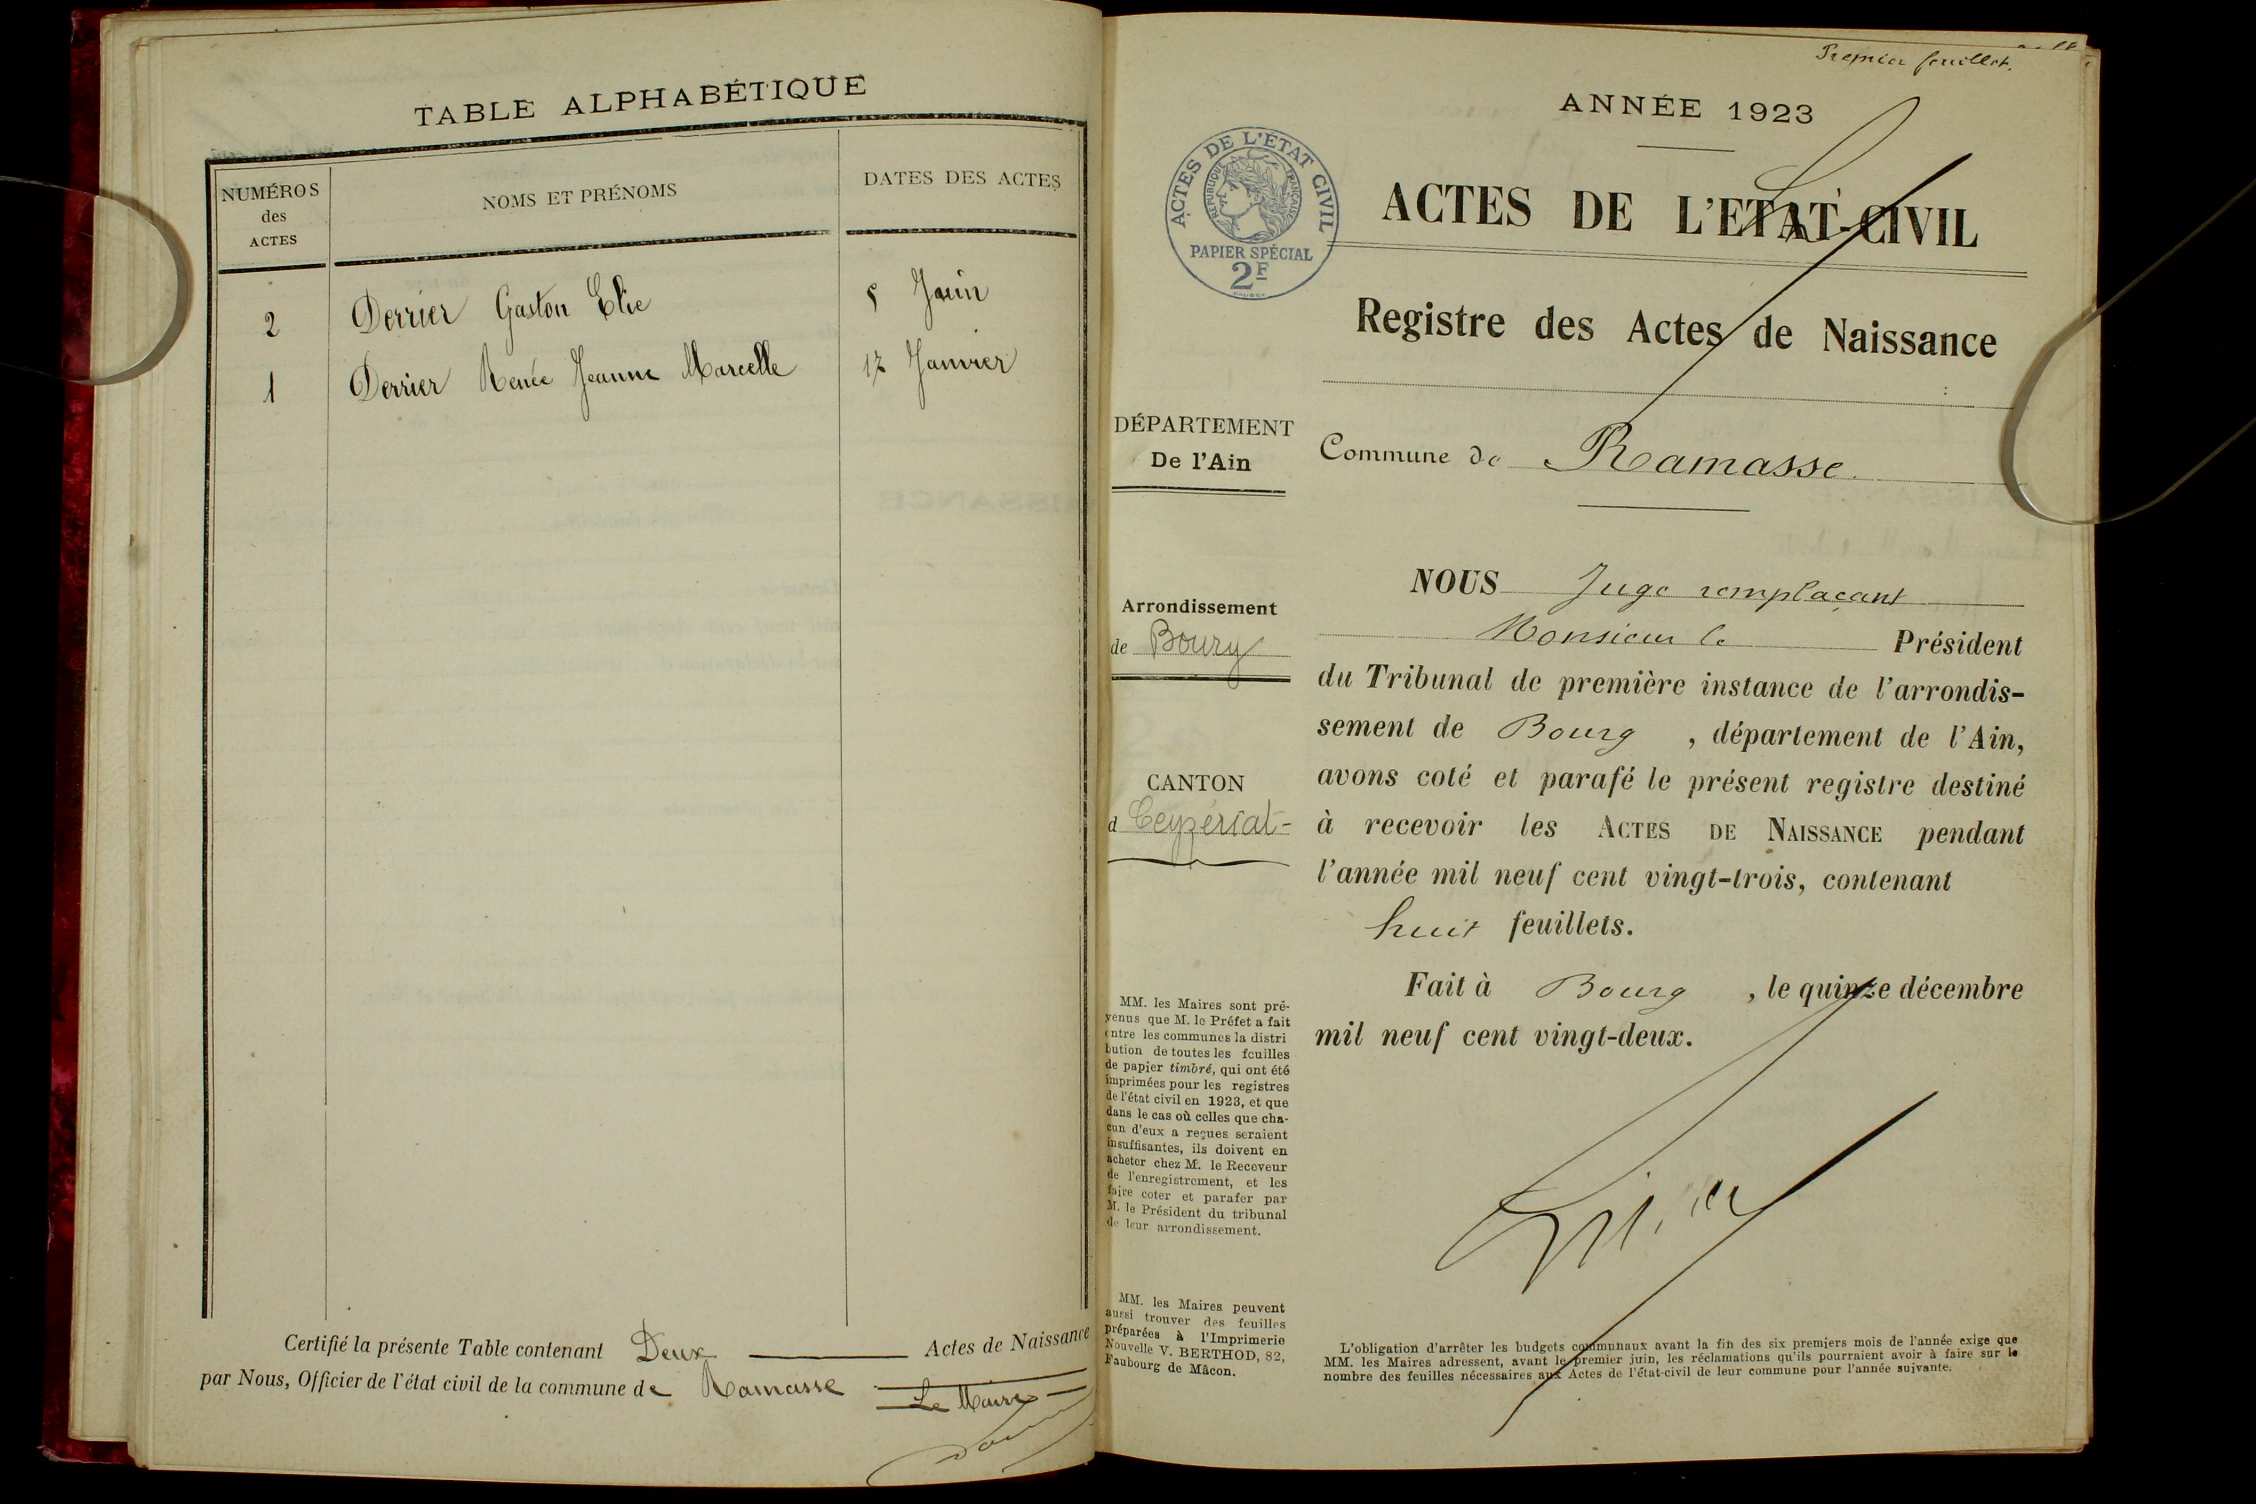 TABLE ALPHABÉTIQUE
NUMÉROS
des
ACTES
NOMS ET PRÉNOMS
DATES DES ACTES
2 Derrier Gaston Elie 5 Juin
1 Derrier Renée Jeanne Marcelle 17 Janvier
Certifié la présente Table contenant Deux Actes de Naissance
par Nous, Officier de l'état civil de la commune de Ramasse
Le Maire
Premier feuillet.
ANNÉE 1923
ACTES DE L'ÉTAT CIVIL
RÉPUBLIQUE FRANÇAISE
PAPIER SPÉCIAL
2F
ACTES DE L'ETAT-CIVIL
Registre des Actes de Naissance
DÉPARTEMENT
De l'Ain
Commune de Ramasse
Arrondissement
de Bourg
CANTON
d Ceyzériat
NOUS Juge remplaçant
Monsieur le Président
du Tribunal de première instance de l'arrondis-
sement de Bourg, département de l'Ain,
avons coté et parafé le présent registre destiné
à recevoir les ACTES DE NAISSANCE pendant
l'année mil neuf cent vingt-trois, contenant
huit feuillets.
Fait à Bourg, le quinze décembre
mil neuf cent vingt-deux.
MM. les Maires sont pré-
venus que M. le Préfet a fait
entre les communes la distri
bution de toutes les feuilles
de papier timbré, qui ont été
imprimées pour les registres
de l'état civil en 1923, et que
dans le cas où celles que cha-
cun d'eux a reçues seraient
insuffisantes, ils doivent en
acheter chez M. le Receveur
de l'enregistrement, et les
faire coter et parafer par
M. le Président du tribunal
de leur arrondissement.
MM. les Maires peuvent
aussi trouver des feuilles
préparées à l'Imprimerie
Nouvelle V. BERTHOD, 82,
Faubourg de Mâcon.
L'obligation d'arrêter les budgets communaux avant la fin des six premiers mois de l'année exige que
MM. les Maires adressent, avant le premier juin, les réclamations qu'ils pourraient avoir à faire sur le
nombre des feuilles nécessaires aux Actes de l'état-civil de leur commune pour l'année suivante.